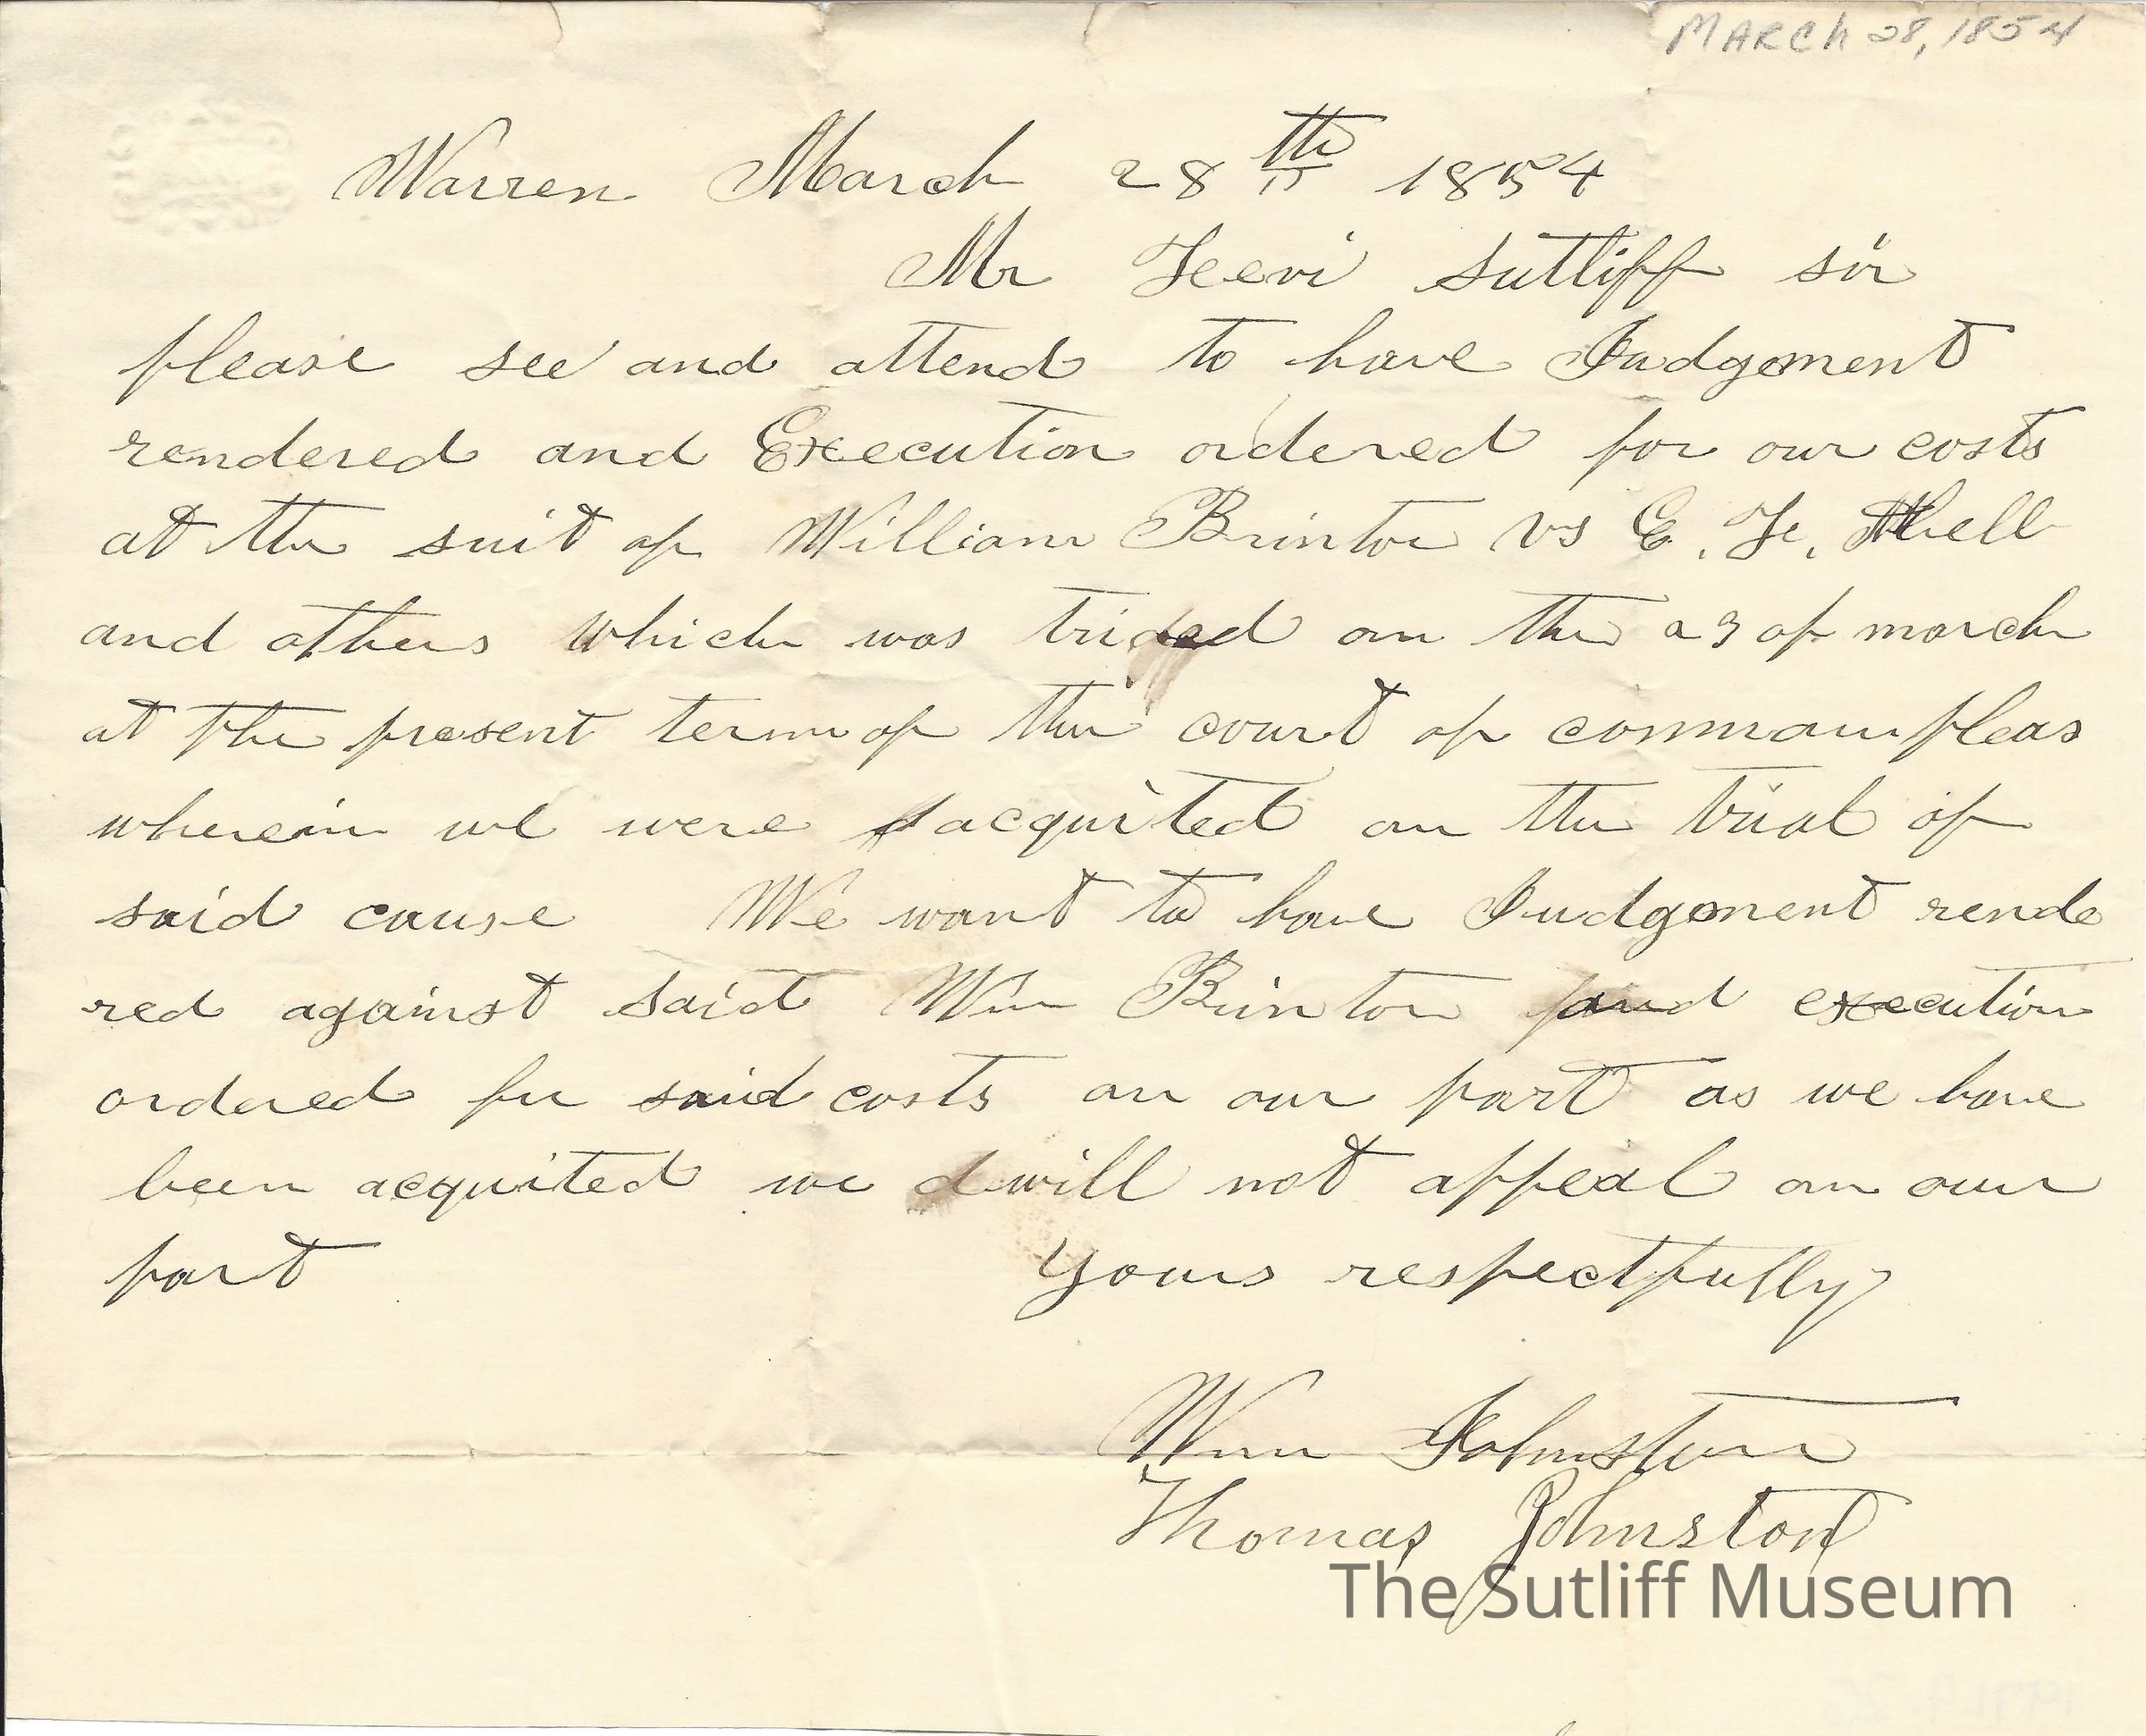 MARCh 28, 1854
Warren March 28th 1854
Mr Leevi Sutliff sir
please see and attend to have Judgement
rendered and Execution ordered for our costs
at the suit of William Brinton vs E. L.
and others which was tried on the 23 of march
at the present term of the court of common pleas
wherein we were acquited on the trial of
said cause We want to have Judgement rende
red against said Wm Brinton and execution
ordered for said costs on our part as we have
been acquited we will not appeal on our
part Yours respectfully
Wm Johnston
Thomas Johnston
The Sutliff Museum